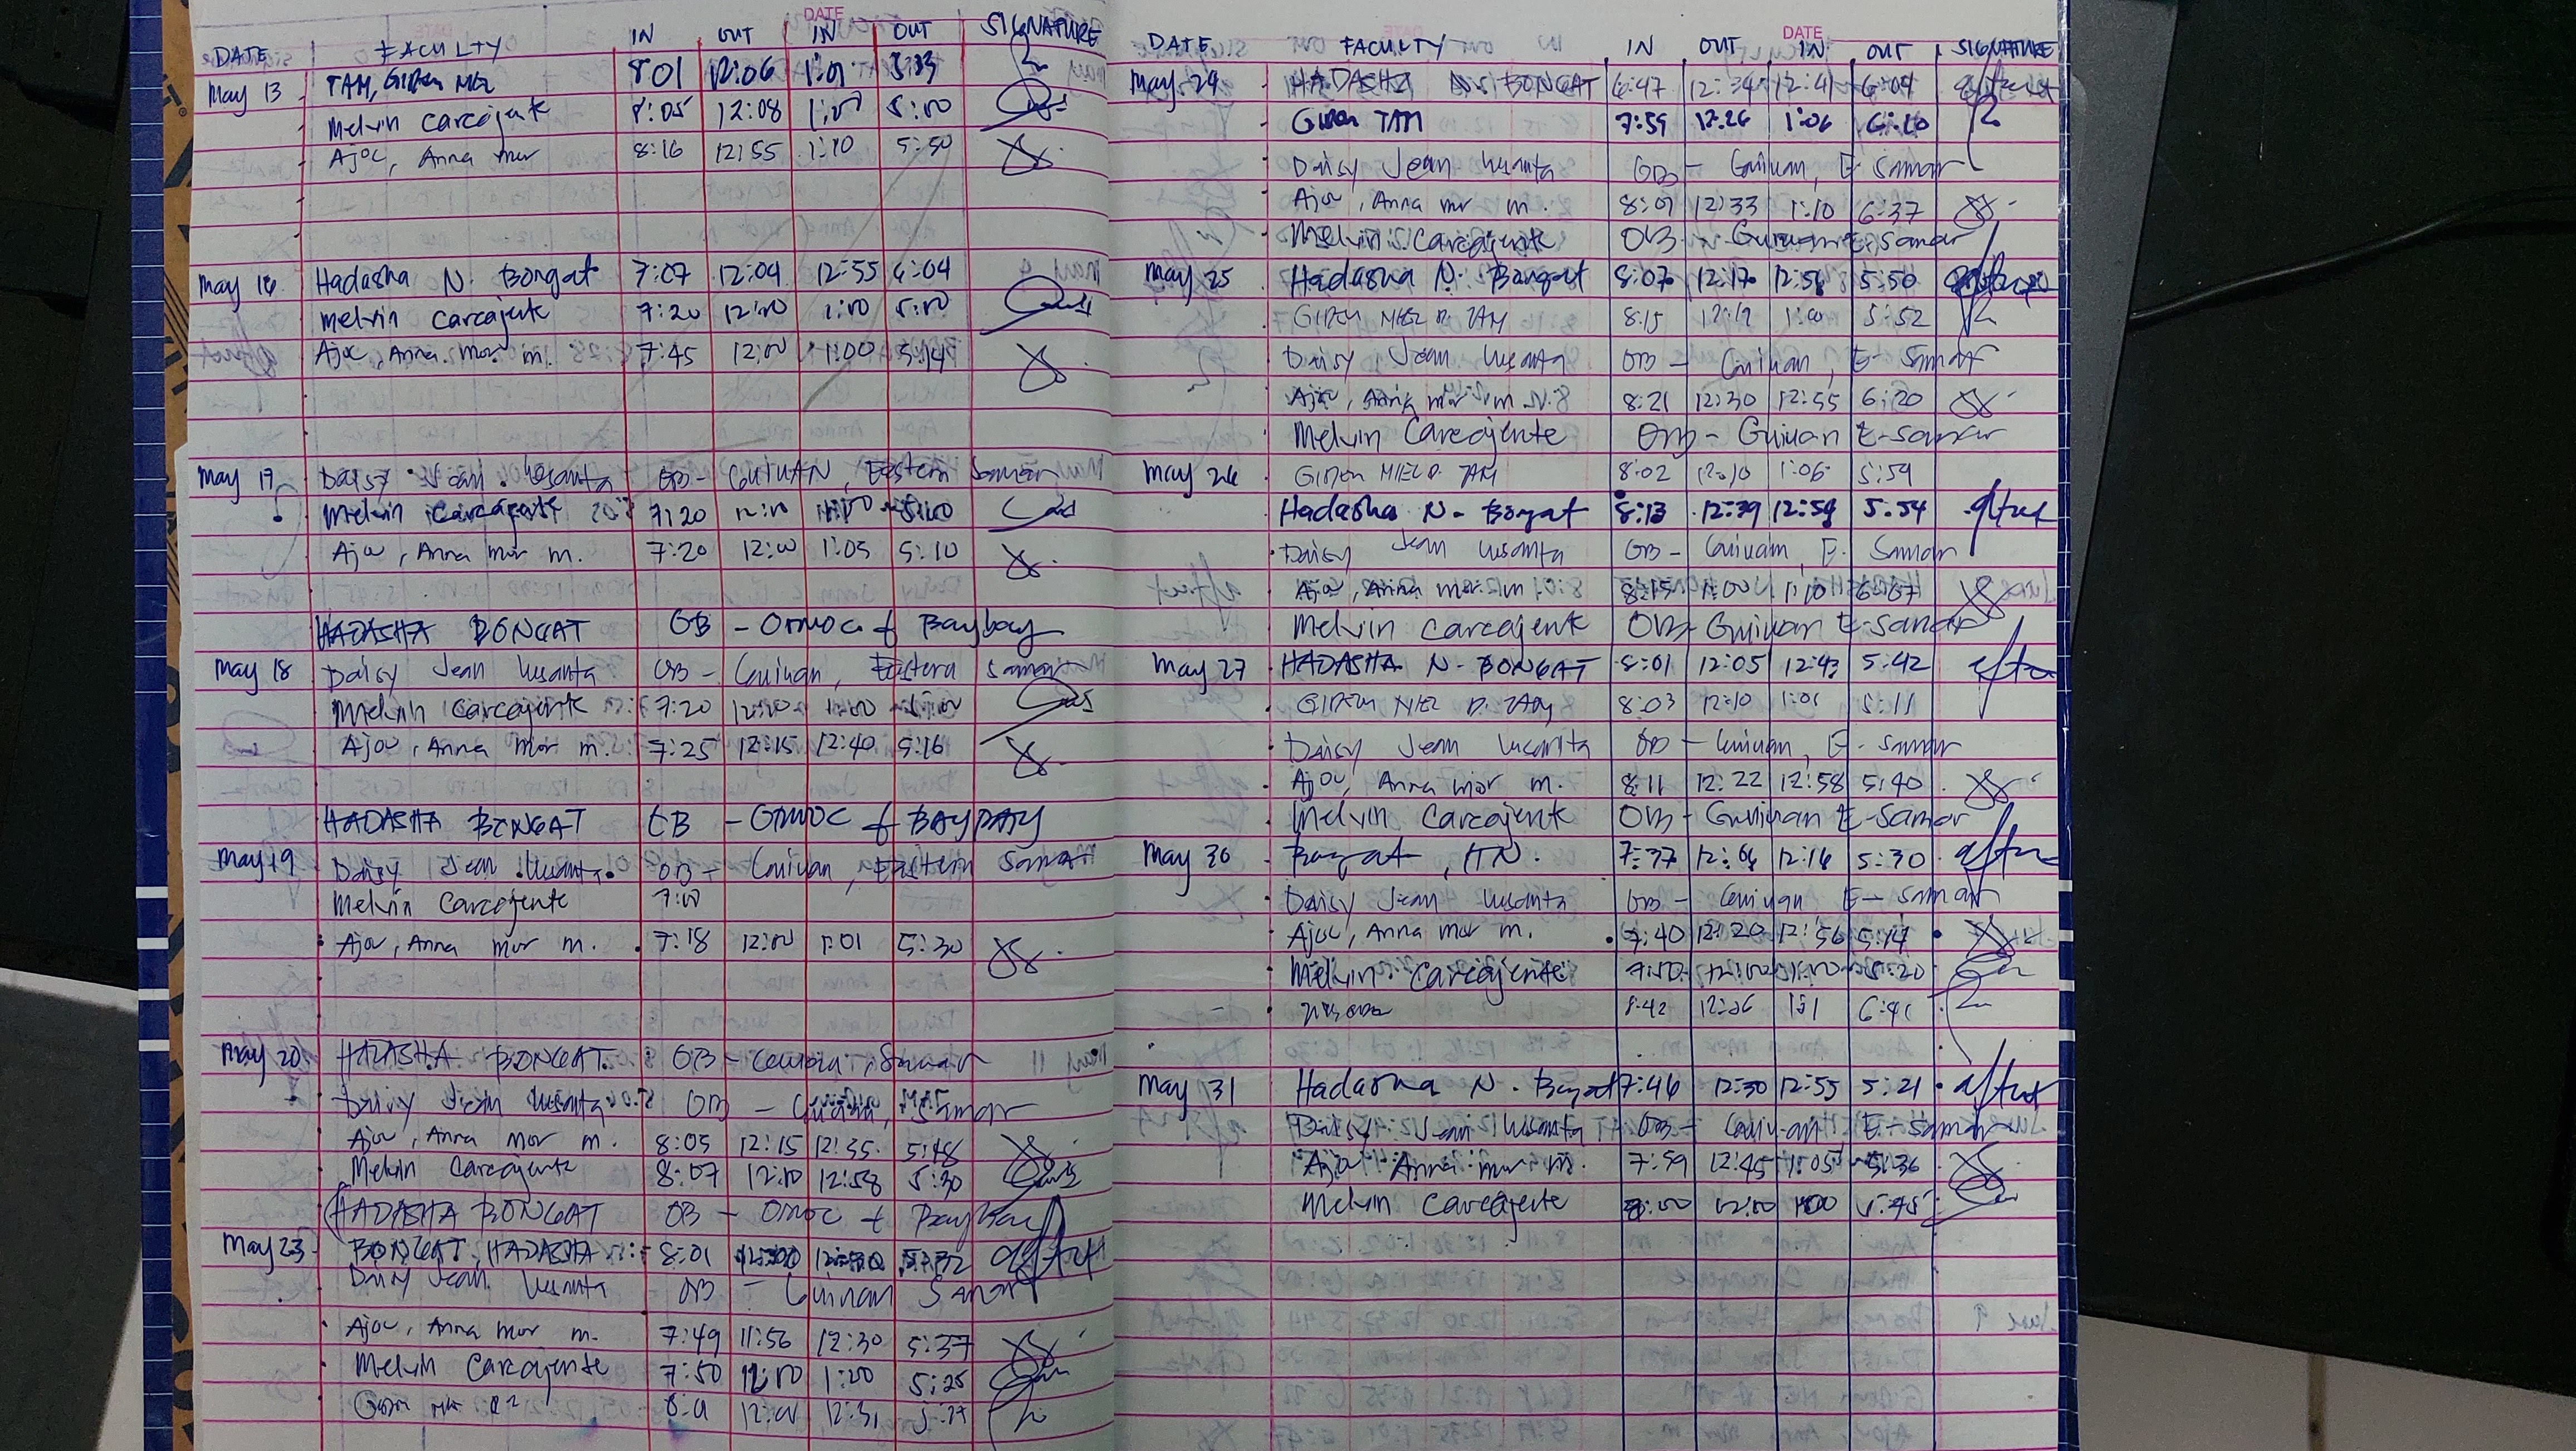 DATE
DATE FACULTY IN OUT IN OUT SIGNATURE
May 13 TAM, Giden 8:01 12:06 1:01
Melvin Carcajente 8:05 12:08 1:00 5:00
Ajoc, Anna mor 8:16 12:55 1:10 5:50
May 16 Hadasha N. Bongat 7:07 12:04 12:55 6:04
Melvin Carcajente 7:20 12:00 1:00 5:00
Ajoc, Anna mor m. 7:45 12:00 1:00 5:14
May 17 Daisy Jean Lusanta OB - GUIUAN, Eastern Samar
Melvin Carcajente 7:20 12:00 1:00 5:00
Ajoc, Anna mor m. 7:20 12:00 1:05 5:10
HADASHA BONGAT OB - Ormoc & Baybay
May 18 Daisy Jean Lusanta OB - Guiuan, Eastern Samar
Melvin Carcajente 7:20 12:00 1:00 5:00
Ajoc, Anna mor m. 7:25 12:15 12:40 5:16
HADASHA BONGAT OB - ORMOC & BAYBAY
May 19 Daisy Jean Lusanta OB - Guiuan, Eastern Samar
Melvin Carcajente 7:00
Ajoc, Anna mor m. 7:18 12:00 1:01 5:30
May 20 HADASHA BONGAT OB - Samar
Daisy Jean Lusanta OB - Guiuan, Samar
Ajoc, Anna mor m. 8:05 12:15 12:55 5:48
Melvin Carcajente 8:07 12:10 12:58 5:30
HADASHA BONGAT OB - Ormoc & Baybay
May 23 BONGAT, HADASHA 8:01
Daisy Jean Lusanta OB - Guiuan Samar
Ajoc, Anna mor m. 7:49 11:56 12:30 5:37
Melvin Carcajente 7:50 12:00 1:00 5:25
DATE
DATE FACULTY IN OUT IN OUT SIGNATURE
May 24 HADASHA N. BONGAT 6:47 12:34 12:41 6:04
Giden TAM 7:59 12:26 1:06 6:10
Daisy Jean Lusanta OB - Guiuan, E. Samar
Ajoc, Anna mor m. 8:01 12:33 1:10 6:37
Melvin Carcajente OB - Guiuan E. Samar
May 25 Hadasha N. Bongat 8:07 12:17 12:56 5:50
GIDEN MIEL D. TAM 8:15 12:12 1:00 5:52
Daisy Jean Lusanta OB - Guiuan, E- Samar
Ajoc, Anna mor m. 8:21 12:30 12:55 6:20
Melvin Carcajente OB - Guiuan E-Samar
May 26 GIDEN MIEL D. TAM 8:02 12:10 1:06 5:59
Hadasha N- Bongat 8:13 12:39 12:59 5:54
Daisy Jean Lusanta OB - Guiuan, E. Samar
Ajoc, Anna mor m 8:15 1:00 1:10 6:07
Melvin Carcajente OB - Guiuan E-Samar
May 27 HADASHA N- BONGAT 8:01 12:05 12:43 5:42
GIDEN MIEL D. TAM 8:03 12:10 1:01 5:11
Daisy Jean Lusanta OB - Guiuan, E- Samar
Ajoc, Anna mor m. 8:11 12:22 12:58 5:40
Melvin Carcajente OB - Guiuan E-Samar
May 30 Bongat, HN. 7:37 12:16 5:30
Daisy Jean Lusanta OB - Guiuan E- Samar
Ajoc, Anna mor m. 7:40 12:20 12:56 5:14
Melvin Carcajente 7:50 12:00 1:00 5:20
8:42
May 31 Hadasha N. Bongat 7:46 12:30 12:55 5:21
Daisy Jean Lusanta OB - Guiuan, E- Samar
Ajoc Anna mor m. 7:59 12:45 1:05 5:36
Melvin Carcajente 8:00 12:00 1:00 5:45